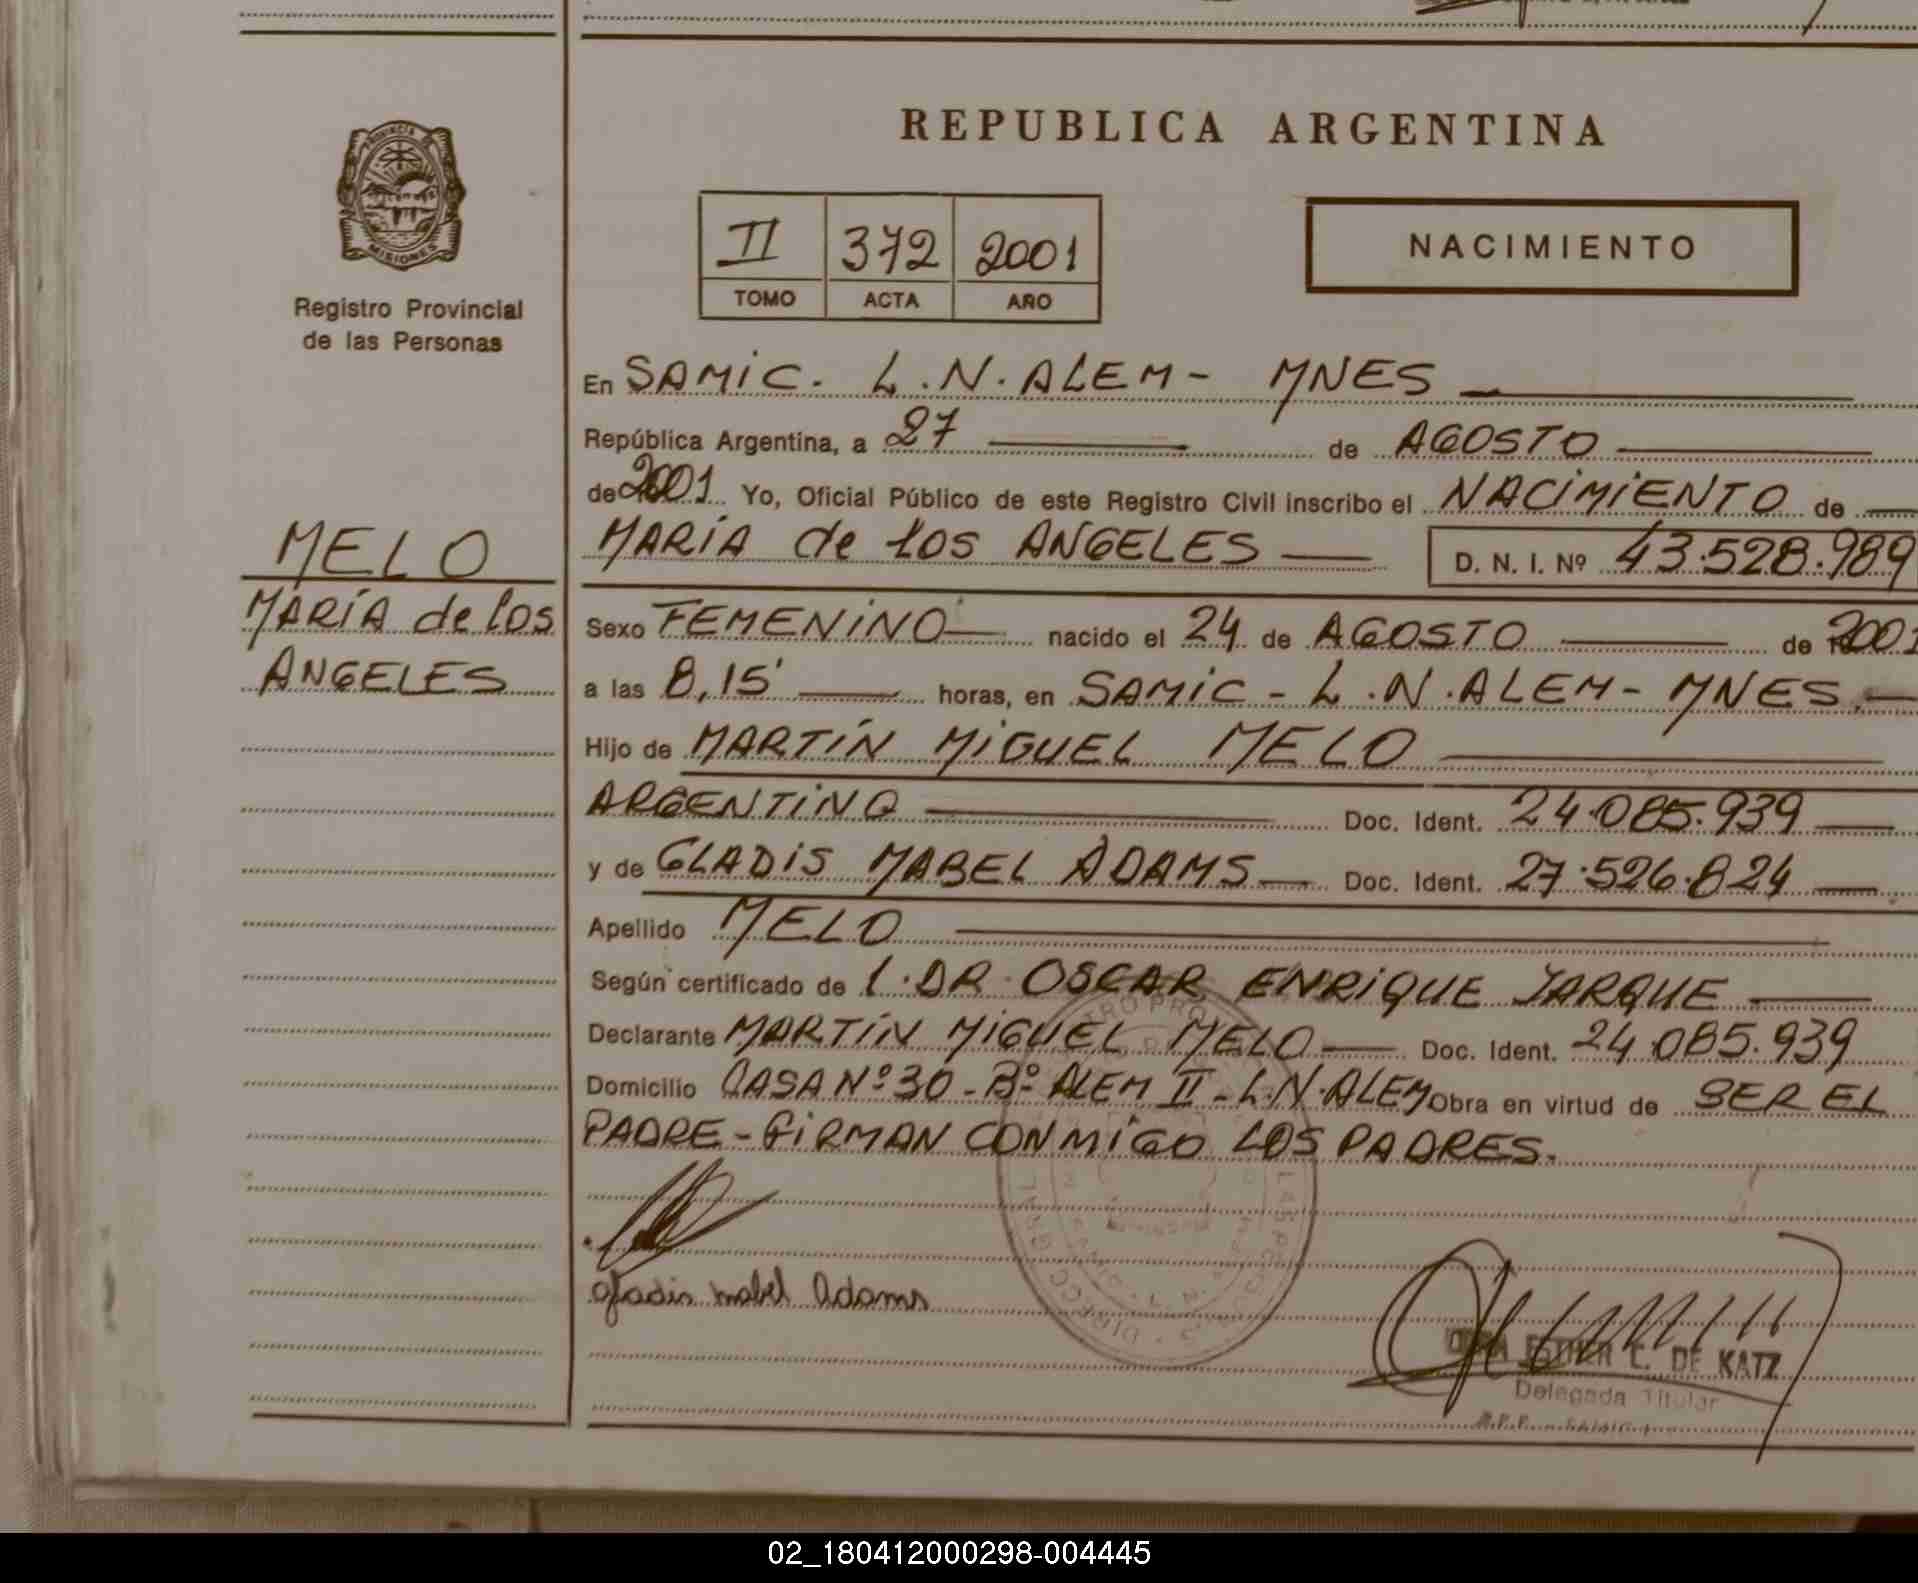 REPUBLICA ARGENTINA
PROVINCIA DE
MISIONES
Registro Provincial
de las Personas
II 372 2001
TOMO ACTA AÑO
NACIMIENTO
En SAMiC. L.N.ALEM- MNES
República Argentina, a 27 de AGOSTO
de 2001 Yo, Oficial Público de este Registro Civil inscribo el NACiMiENTO de
MELO
MARÍA de los ANGELES D. N. I. Nº 43.528.989
MARÍA de los
ANGELES
Sexo FEMENiNO nacido el 24 de AGOSTO de 2001
a las 8,15' horas, en SAMiC - L.N.ALEM- MNES.
Hijo de MARTíN MiGUEL MELO
ARGENTiNO Doc. Ident. 24.085.939
y de GLADiS MABEL ADAMS Doc. Ident. 27.526.824
Apellido MELO
Según certificado de 1.DR. OSCAR ENRiQUE YARQUE
Declarante MARTíN MiGUEL MELO Doc. Ident. 24.085.939
Domicilio CASA Nº30-Bº ALEM II-L.N.ALEM Obra en virtud de SER EL
PADRE-FiRMAN CONMiGO LOS PADRES.
Gladis Mabel Adams
ESTHER C. DE KATZ
Delegada Titular
02_180412000298-004445